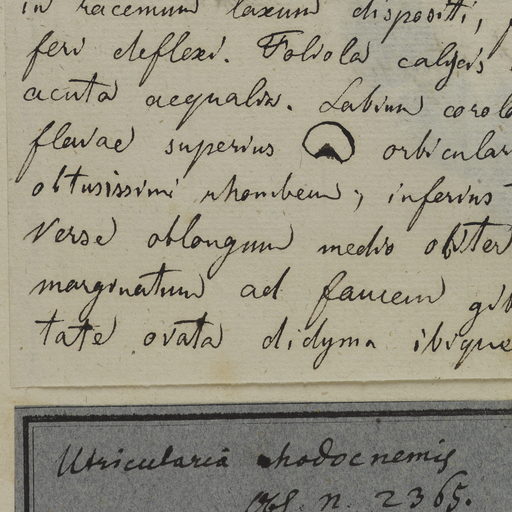 in racemum laxum dispositi,
feri deflexi. Foliola calycis
acuta aequalia. Labium corol
flavae superius orbicular
obtusissimi rhombeum; inferius
verse oblongum medio obiter
marginatum ad faucem gib
tate ovata didyma ibique
Utricularia rhodocnemis
Obs. n. 2365.